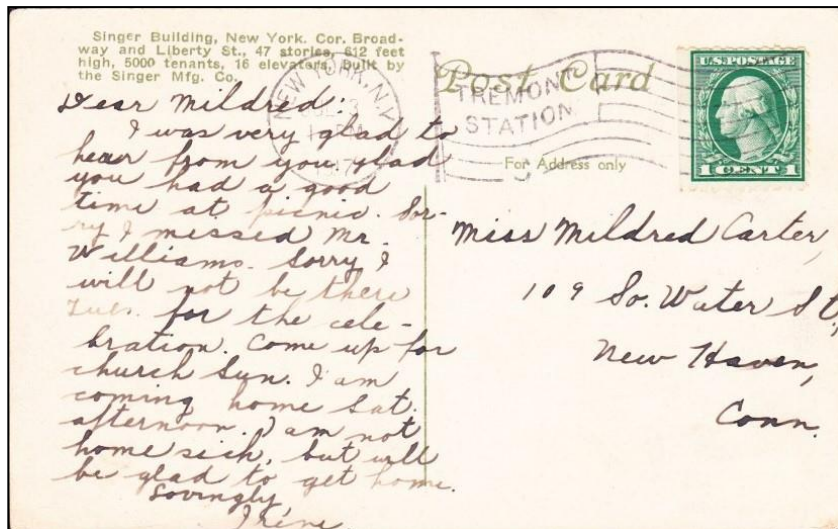 Singer Building, New York. Cor. Broad-
way and Liberty St., 47 stories, 612 feet
high, 5000 tenants, 16 elevators. Built by
the Singer Mfg. Co.
Post Card
NEW YORK, N.Y.
1917
TREMONT
STATION
U.S. POSTAGE
1 CENT 1
For Address only
Dear Mildred:
I was very glad to
hear from you glad
you had a good
time at picnic. Sor-
ry I missed Mr.
Williams. Sorry I
will not be there
Tues. for the cele-
bration. Come up for
church Sun. I am
coming home Sat.
afternoon. I am not
home sick, but will
be glad to get home.
Lovingly,
Irene
Miss Mildred Carter,
109 So. Water St,
New Haven,
Conn.